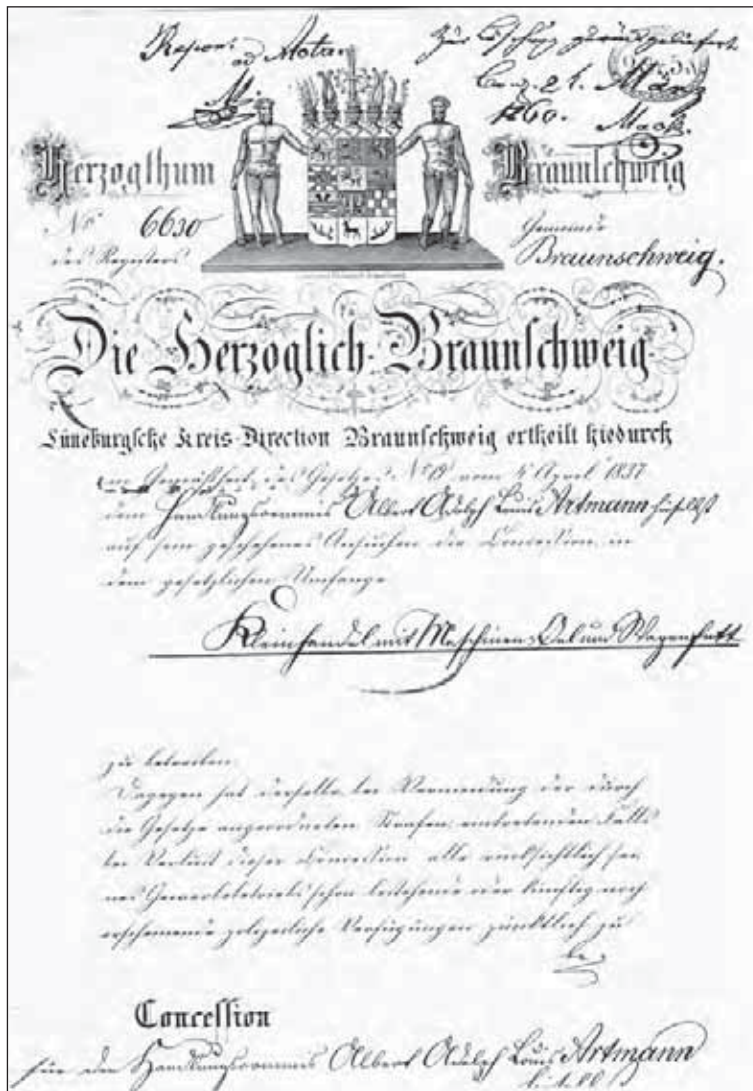 Repon: ad Acta
Zur Löschung zurückgeliefert
21. März
1860. Mack.
Herzogthum Braunschweig
No 6630
des Registers
Gemeinde
Braunschweig.
Die Herzoglich-Braunschweig-
Lüneburgsche Kreis-Direction Braunschweig ertheilt hiedurch
in Gemäßheit des Gesetzes No 19 vom 4 April 1837
dem Handlungscommis Albert Adolph Louis Artmann hieselbst
auf sein geschehenes Ansuchen die Concession, in
dem gesetzlichen Umfange
Kleinhandel mit Maschinen-Oel und Wagenfett
zu betreiben.
Dagegen hat derselbe bei Vermeidung der durch
die Gesetze angeordneten Strafen, eintretenden Falls
bei Verlust dieser Concession alle rücksichtlich sei-
nes Gewerbebetriebs schon bestehende oder künftig noch
erscheinende polizeiliche Verfügungen pünktlich zu
be
Concession
für den Handlungscommis Albert Adolph Louis Artmann
hieselbst